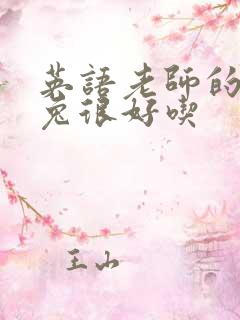 英語老師的
兔很好喫
王山